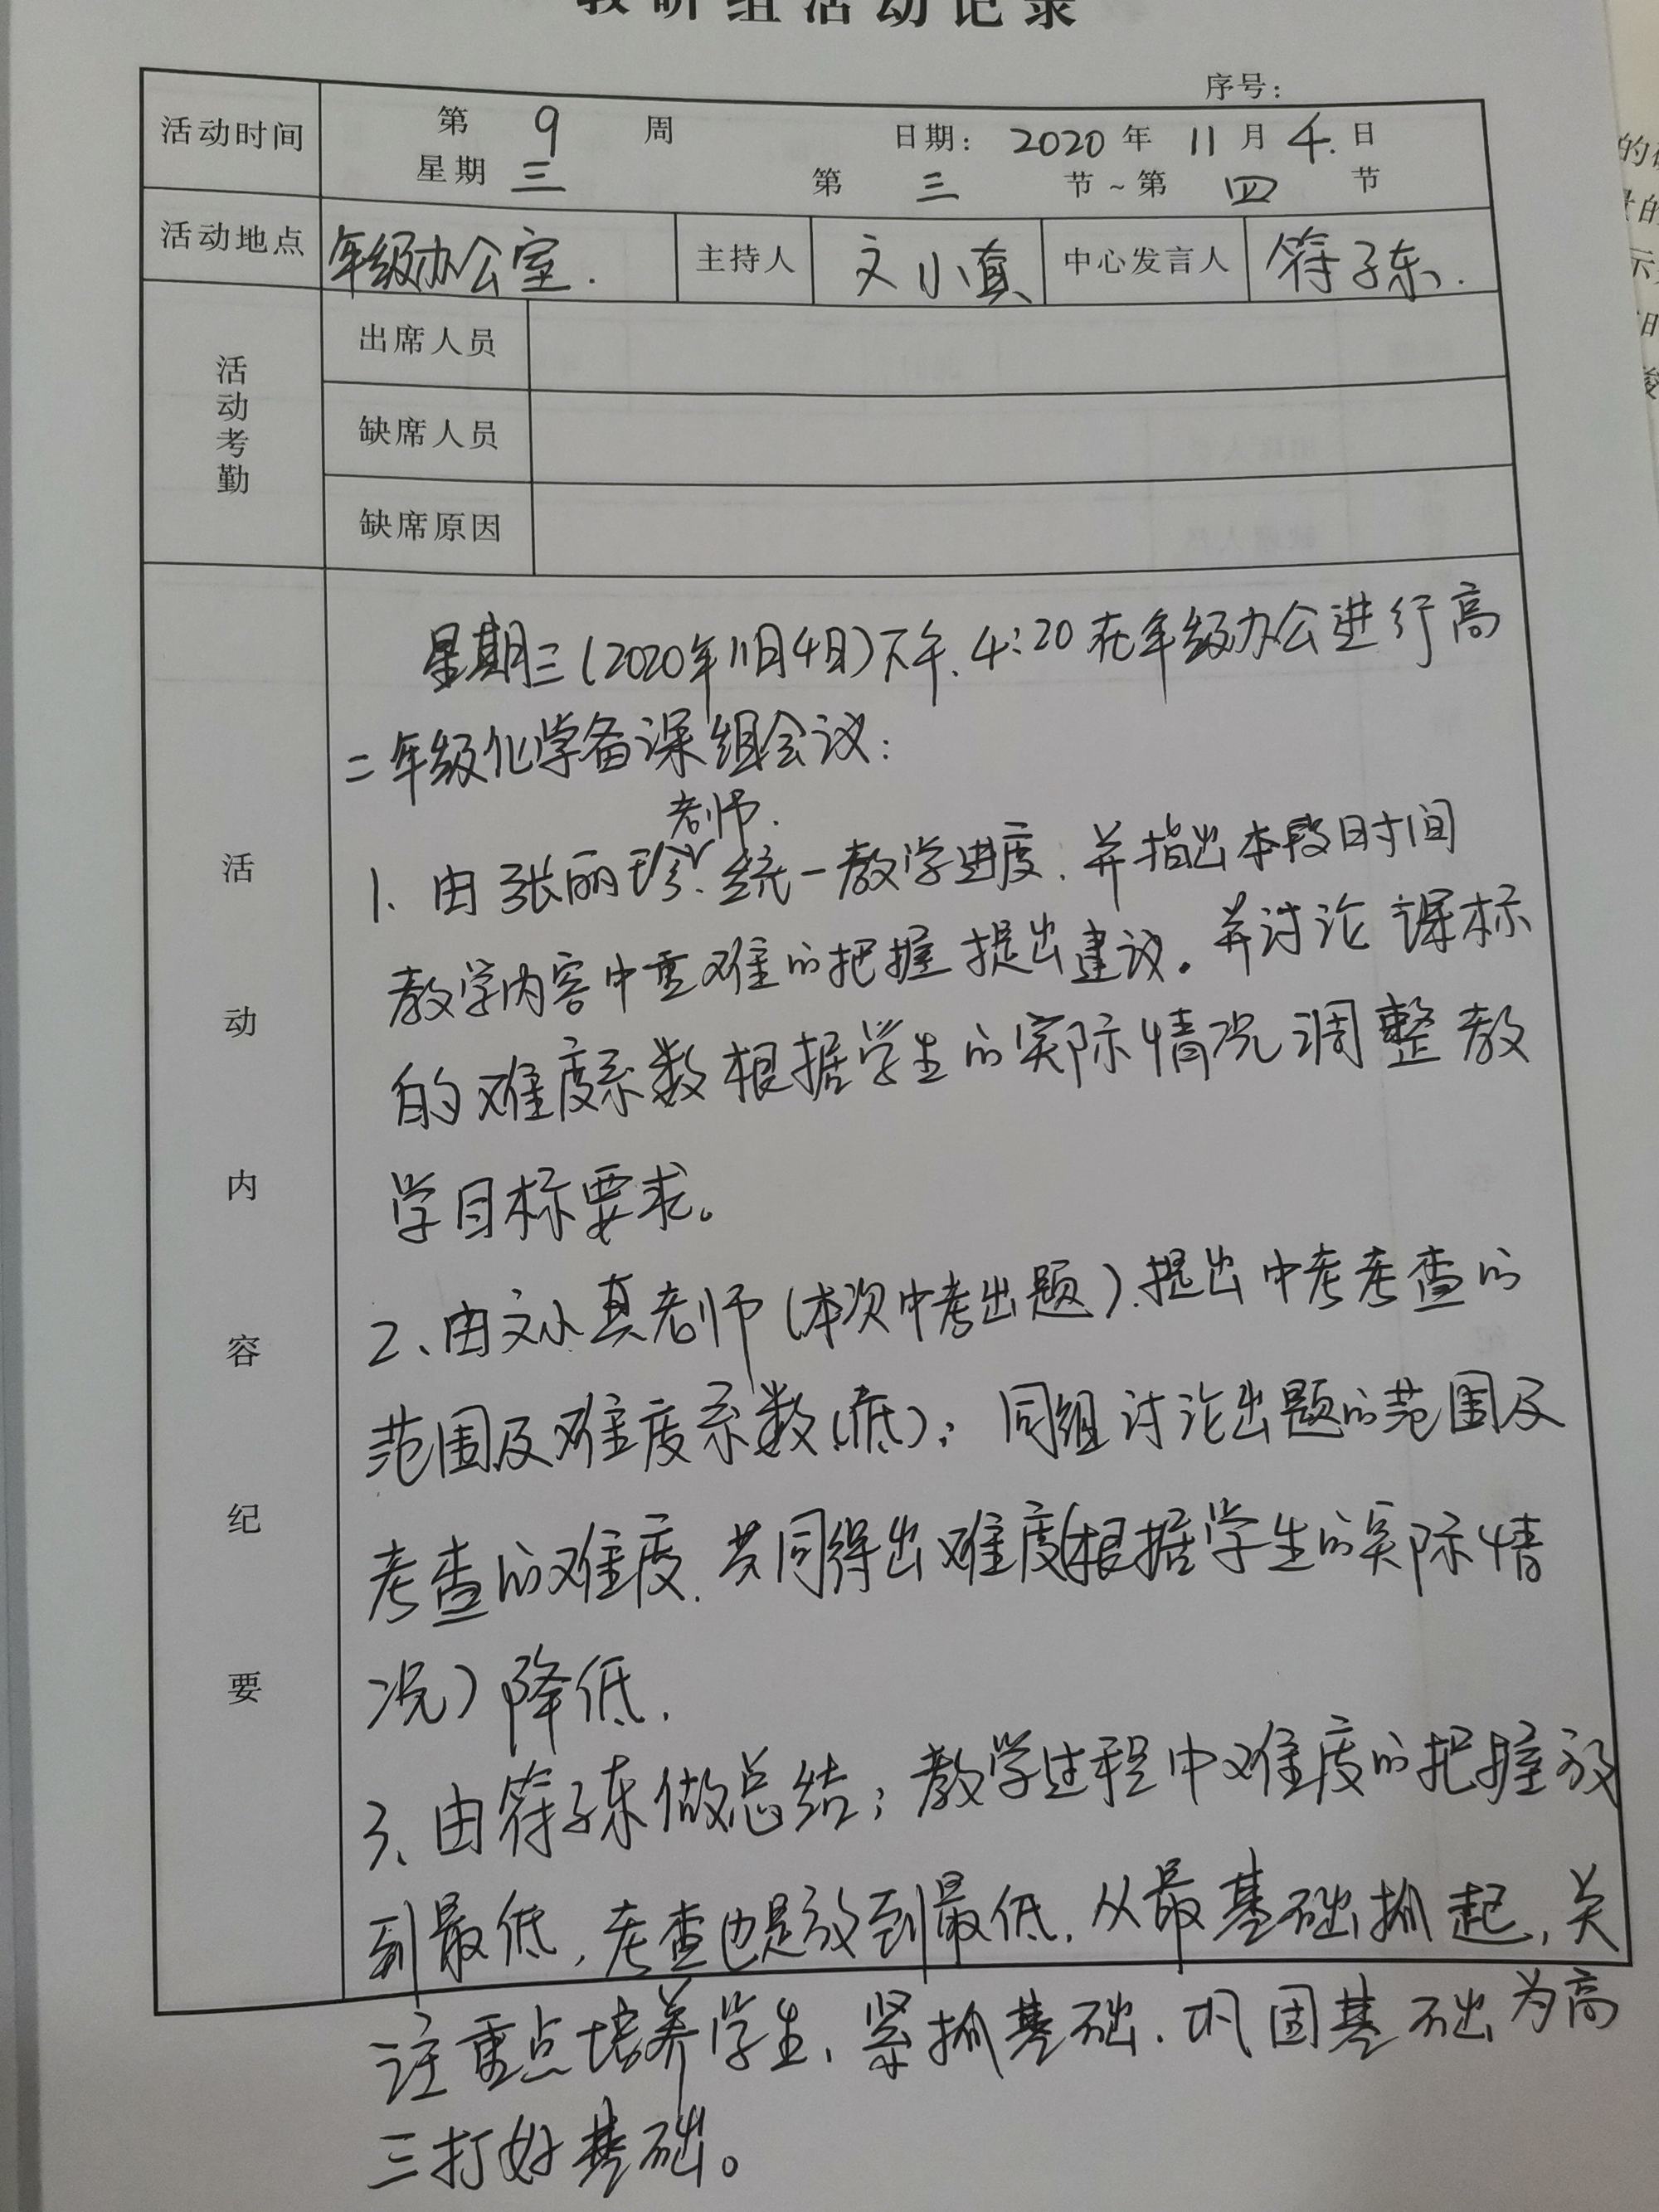 教研组活动记录
序号：
活动时间
第 9 周 日期： 2020 年 11 月 4. 日
星期 三 第 三 节～第 四 节
活动地点 年级办公室. 主持人 文小真 中心发言人 符子东.
活动考勤
出席人员
缺席人员
缺席原因
活动内容纪要
星期三(2020年11月4日)下午.4:20在年级办公进行高
二年级化学备课组会议：
老师.
1、由张丽珍.统一教学进度.并指出本段时间
教学内容中重难的把握提出建议。并讨论课标
的难度系数根据学生的实际情况调整教
学目标要求。
2、由文小真老师(本次中考出题).提出中考考查的
范围及难度系数(低)；同组讨论出题的范围及
考查的难度.共同得出难度(根据学生的实际情
况)降低.
3、由符子东做总结；教学过程中难度的把握放
到最低,考查也是放到最低.从最基础抓起,关
注重点培养学生,紧抓基础.巩固基础为高
三打好基础。